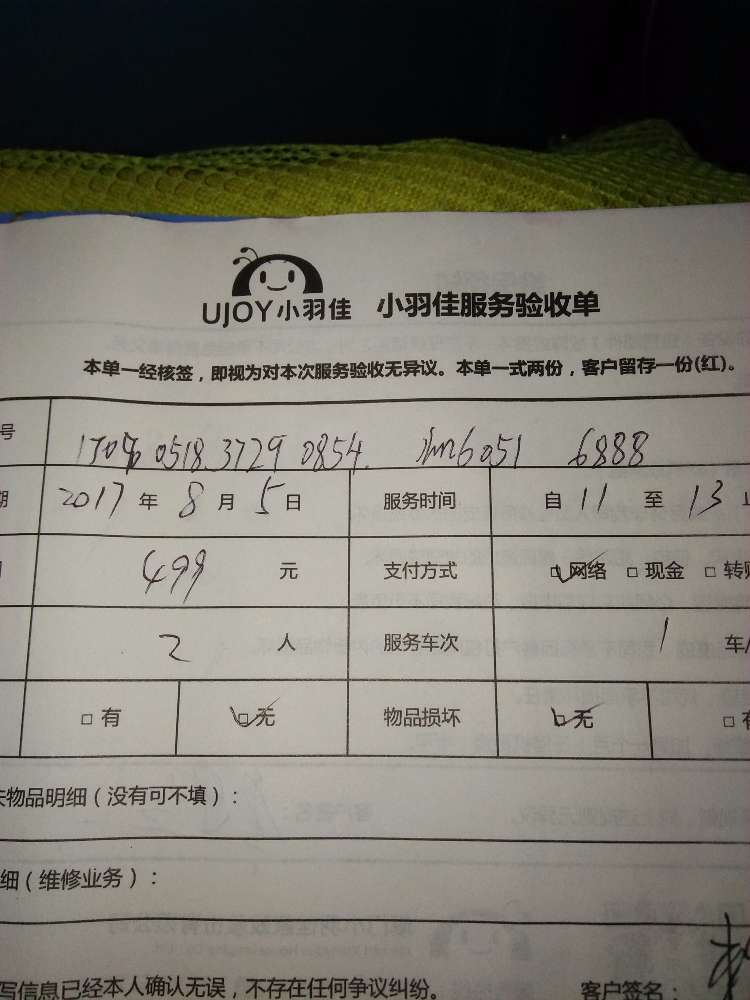 UJOY小羽佳 小羽佳服务验收单
本单一经核签，即视为对本次服务验收无异议。本单一式两份，客户留存一份(红)。
号 0518 3729 0854. 6051 6888
期 2017 年 8 月 5 日 服务时间 自 11 至 13 止
499 元 支付方式 ☑网络 □现金 □转账
2 人 服务车次 1 车/
□有 ☑无 物品损坏 ☑无 □有
失物品明细（没有可不填）：
细（维修业务）：
写信息已经本人确认无误，不存在任何争议纠纷。 客户签名：